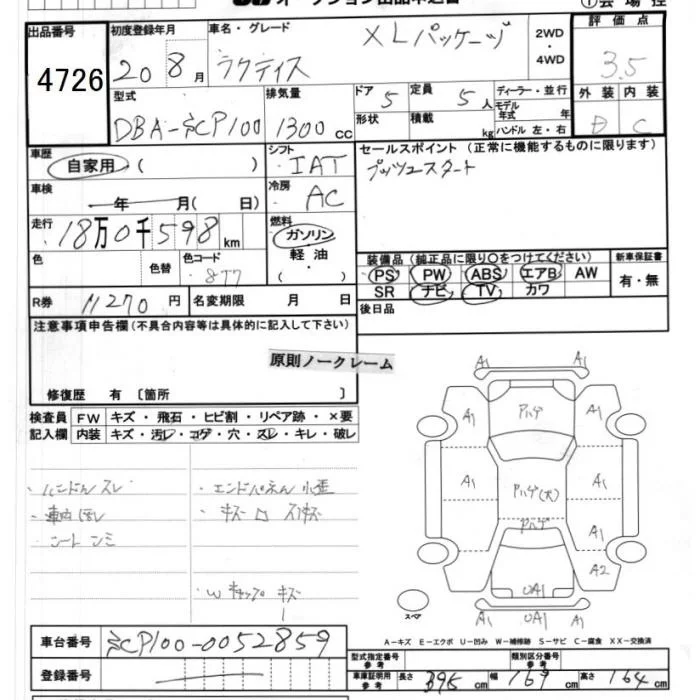 出品番号
4726
初度登録年月
20 8月
車名・グレード
ラクティス XLパッケージ
2WD
・
4WD
評価点
3.5
外装 内装
D C
型式
DBA-SCP100
排気量
1300 cc
ドア 5
形状
定員 5人
積載 kg
ディーラー・並行
モデル年式 年
ハンドル 左・右
車歴
自家用 ( )
シフト
IAT
セールスポイント (正常に機能するものに限ります)
プッシュスタート
車検
年 月( 日)
冷房
AC
走行
18万0千598km
燃料
ガソリン
軽油
・
色 色替 色コード
877
装備品(純正品に限り○をつけてください)
PS PW ABS エアB AW
SR ナビ TV カワ
新車保証書
有・無
R券 11270円
名変期限 月 日
後日品
注意事項申告欄(不具合内容等は具体的に記入して下さい)
原則ノークレーム
修復歴 有〔箇所 〕
検査員記入欄
FW キズ・飛石・ヒビ割・リペア跡・×要
内装 キズ・汚レ・コゲ・穴・スレ・キレ・破レ
・ハンドルスレ
・エンドパネル小歪
・Wキャップキズ
A1 A1
A1 アハゲ A1
A1 アハゲ(大) A1
アハゲ
A1
A2
UA1
A1 UA1 A1
スペア
A-キズ E-エクボ U-凹み W-補修跡 S-サビ C-腐食 XX-交換済
車台番号 SCP100-0052859
登録番号
型式指定番号
参考
類別区分番号
参考
車庫証明用
参考
長さ 395cm 幅 169cm 高さ 164cm